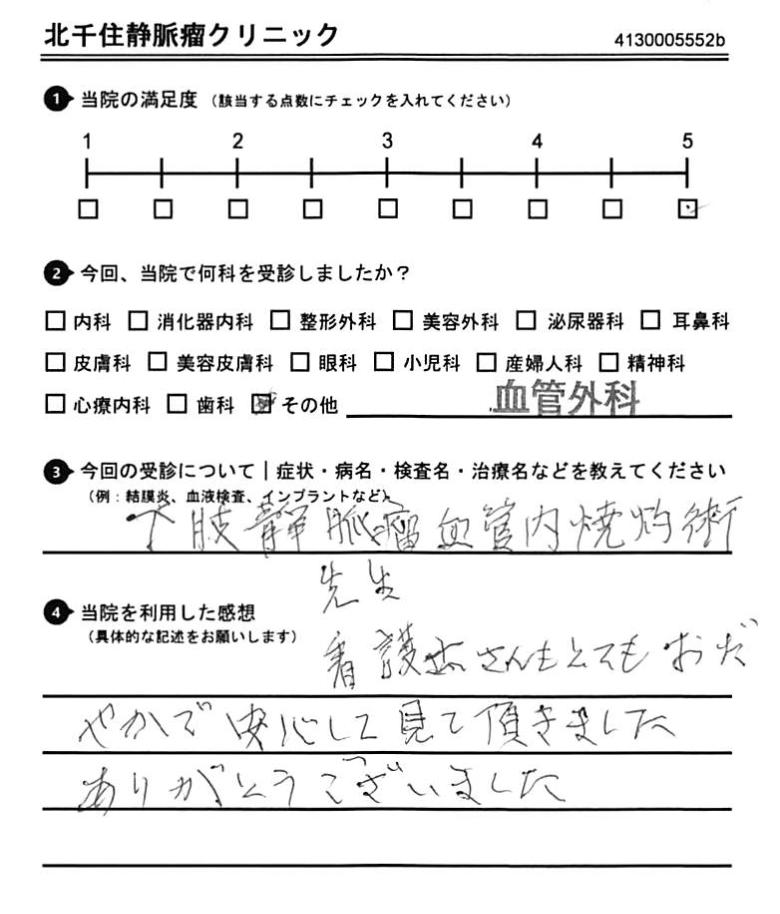 北千住静脈瘤クリニック 4130005552b
1 当院の満足度 (該当する点数にチェックを入れてください)
1 2 3 4 5
2 今回、当院で何科を受診しましたか？
内科 消化器内科 整形外科 美容外科 泌尿器科 耳鼻科
皮膚科 美容皮膚科 眼科 小児科 産婦人科 精神科
心療内科 歯科 その他 血管外科
3 今回の受診について｜症状・病名・検査名・治療名などを教えてください
(例：結膜炎、血液検査、インプラントなど)
下肢静脈瘤血管内焼灼術
先生
4 当院を利用した感想
(具体的な記述をお願いします)
看護士さんもとてもおだ
やかで安心して見て頂きました
ありがとうございました